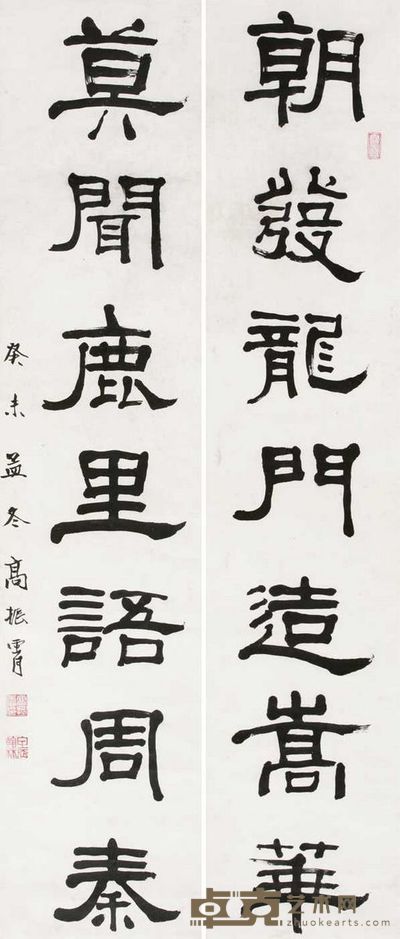 朝發龍門造嵩華
莫聞鹿里語周秦
癸未孟冬高振霄
卓克艺术网
zhuokearts.com